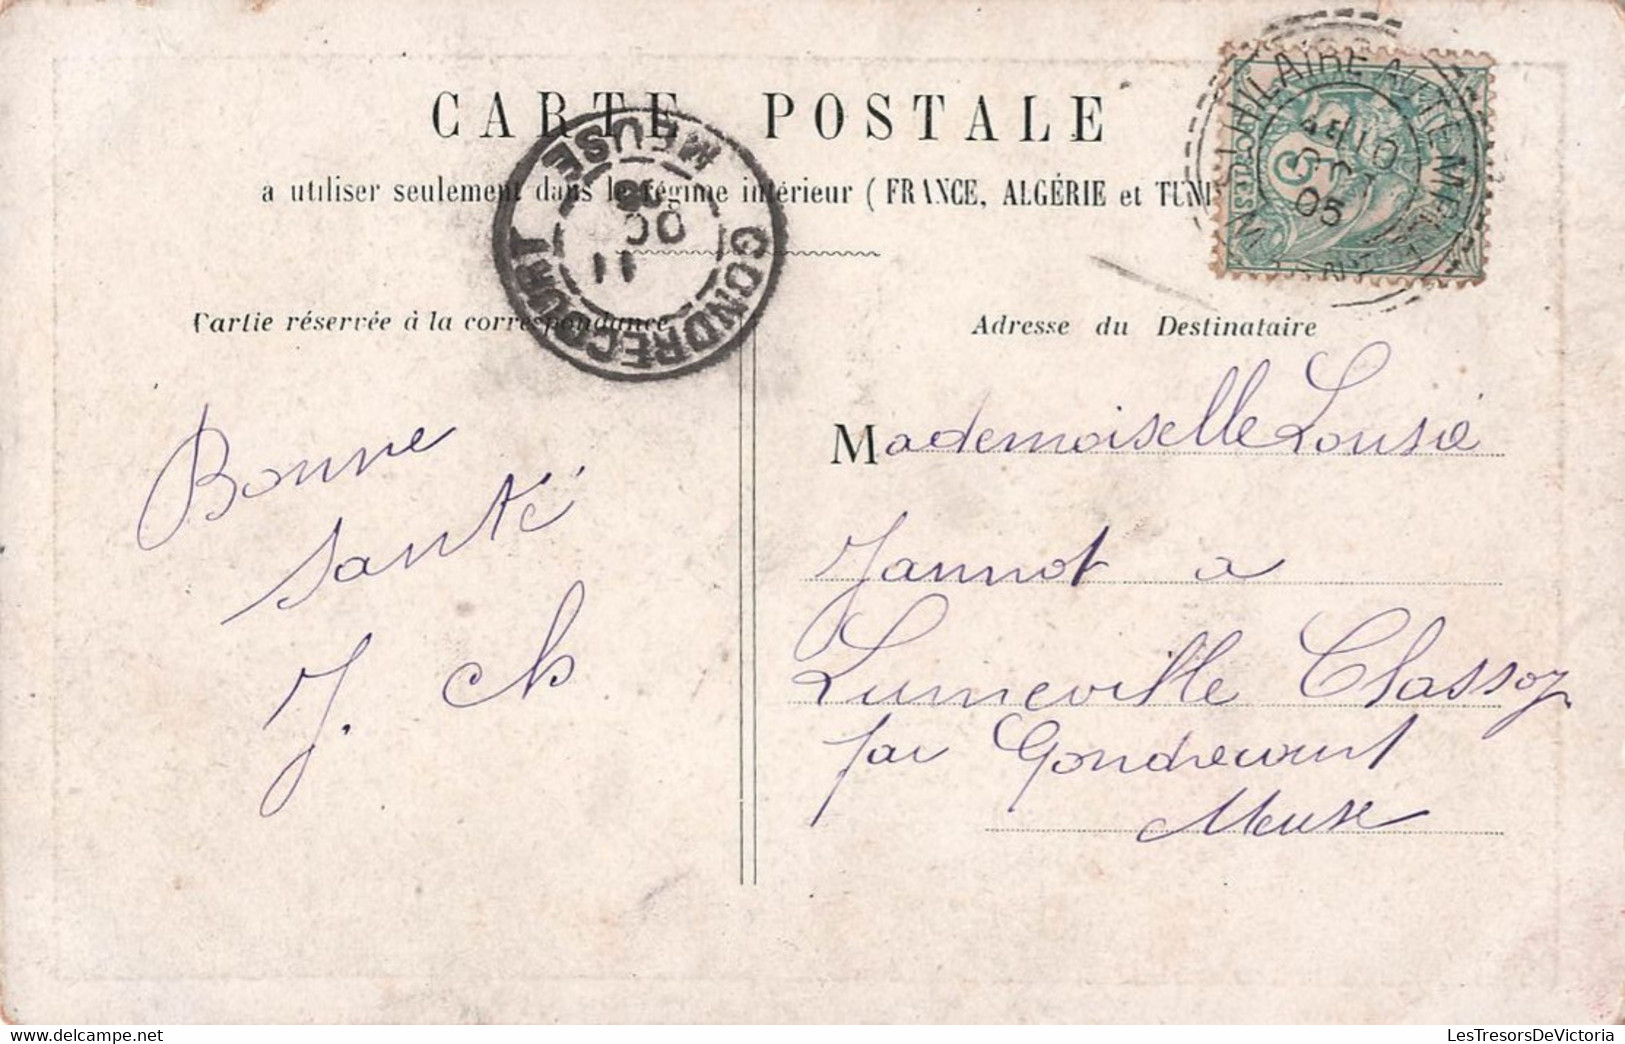 CARTE POSTALE
à utiliser seulement dans le régime intérieur (FRANCE, ALGÉRIE et TUNI
GONDRECOURT
MEUSE
11
OC
05
HILAIRE AU TEMPLE
05
5
Partie réservée à la correspondance
Adresse du Destinataire
Bonne
santé
J. ch
Mademoiselle Lousie
Jannot a
Lumeville Chassoy
par Gondrecourt
Meuse
www.delcampe.net
LesTresorsDeVictoria